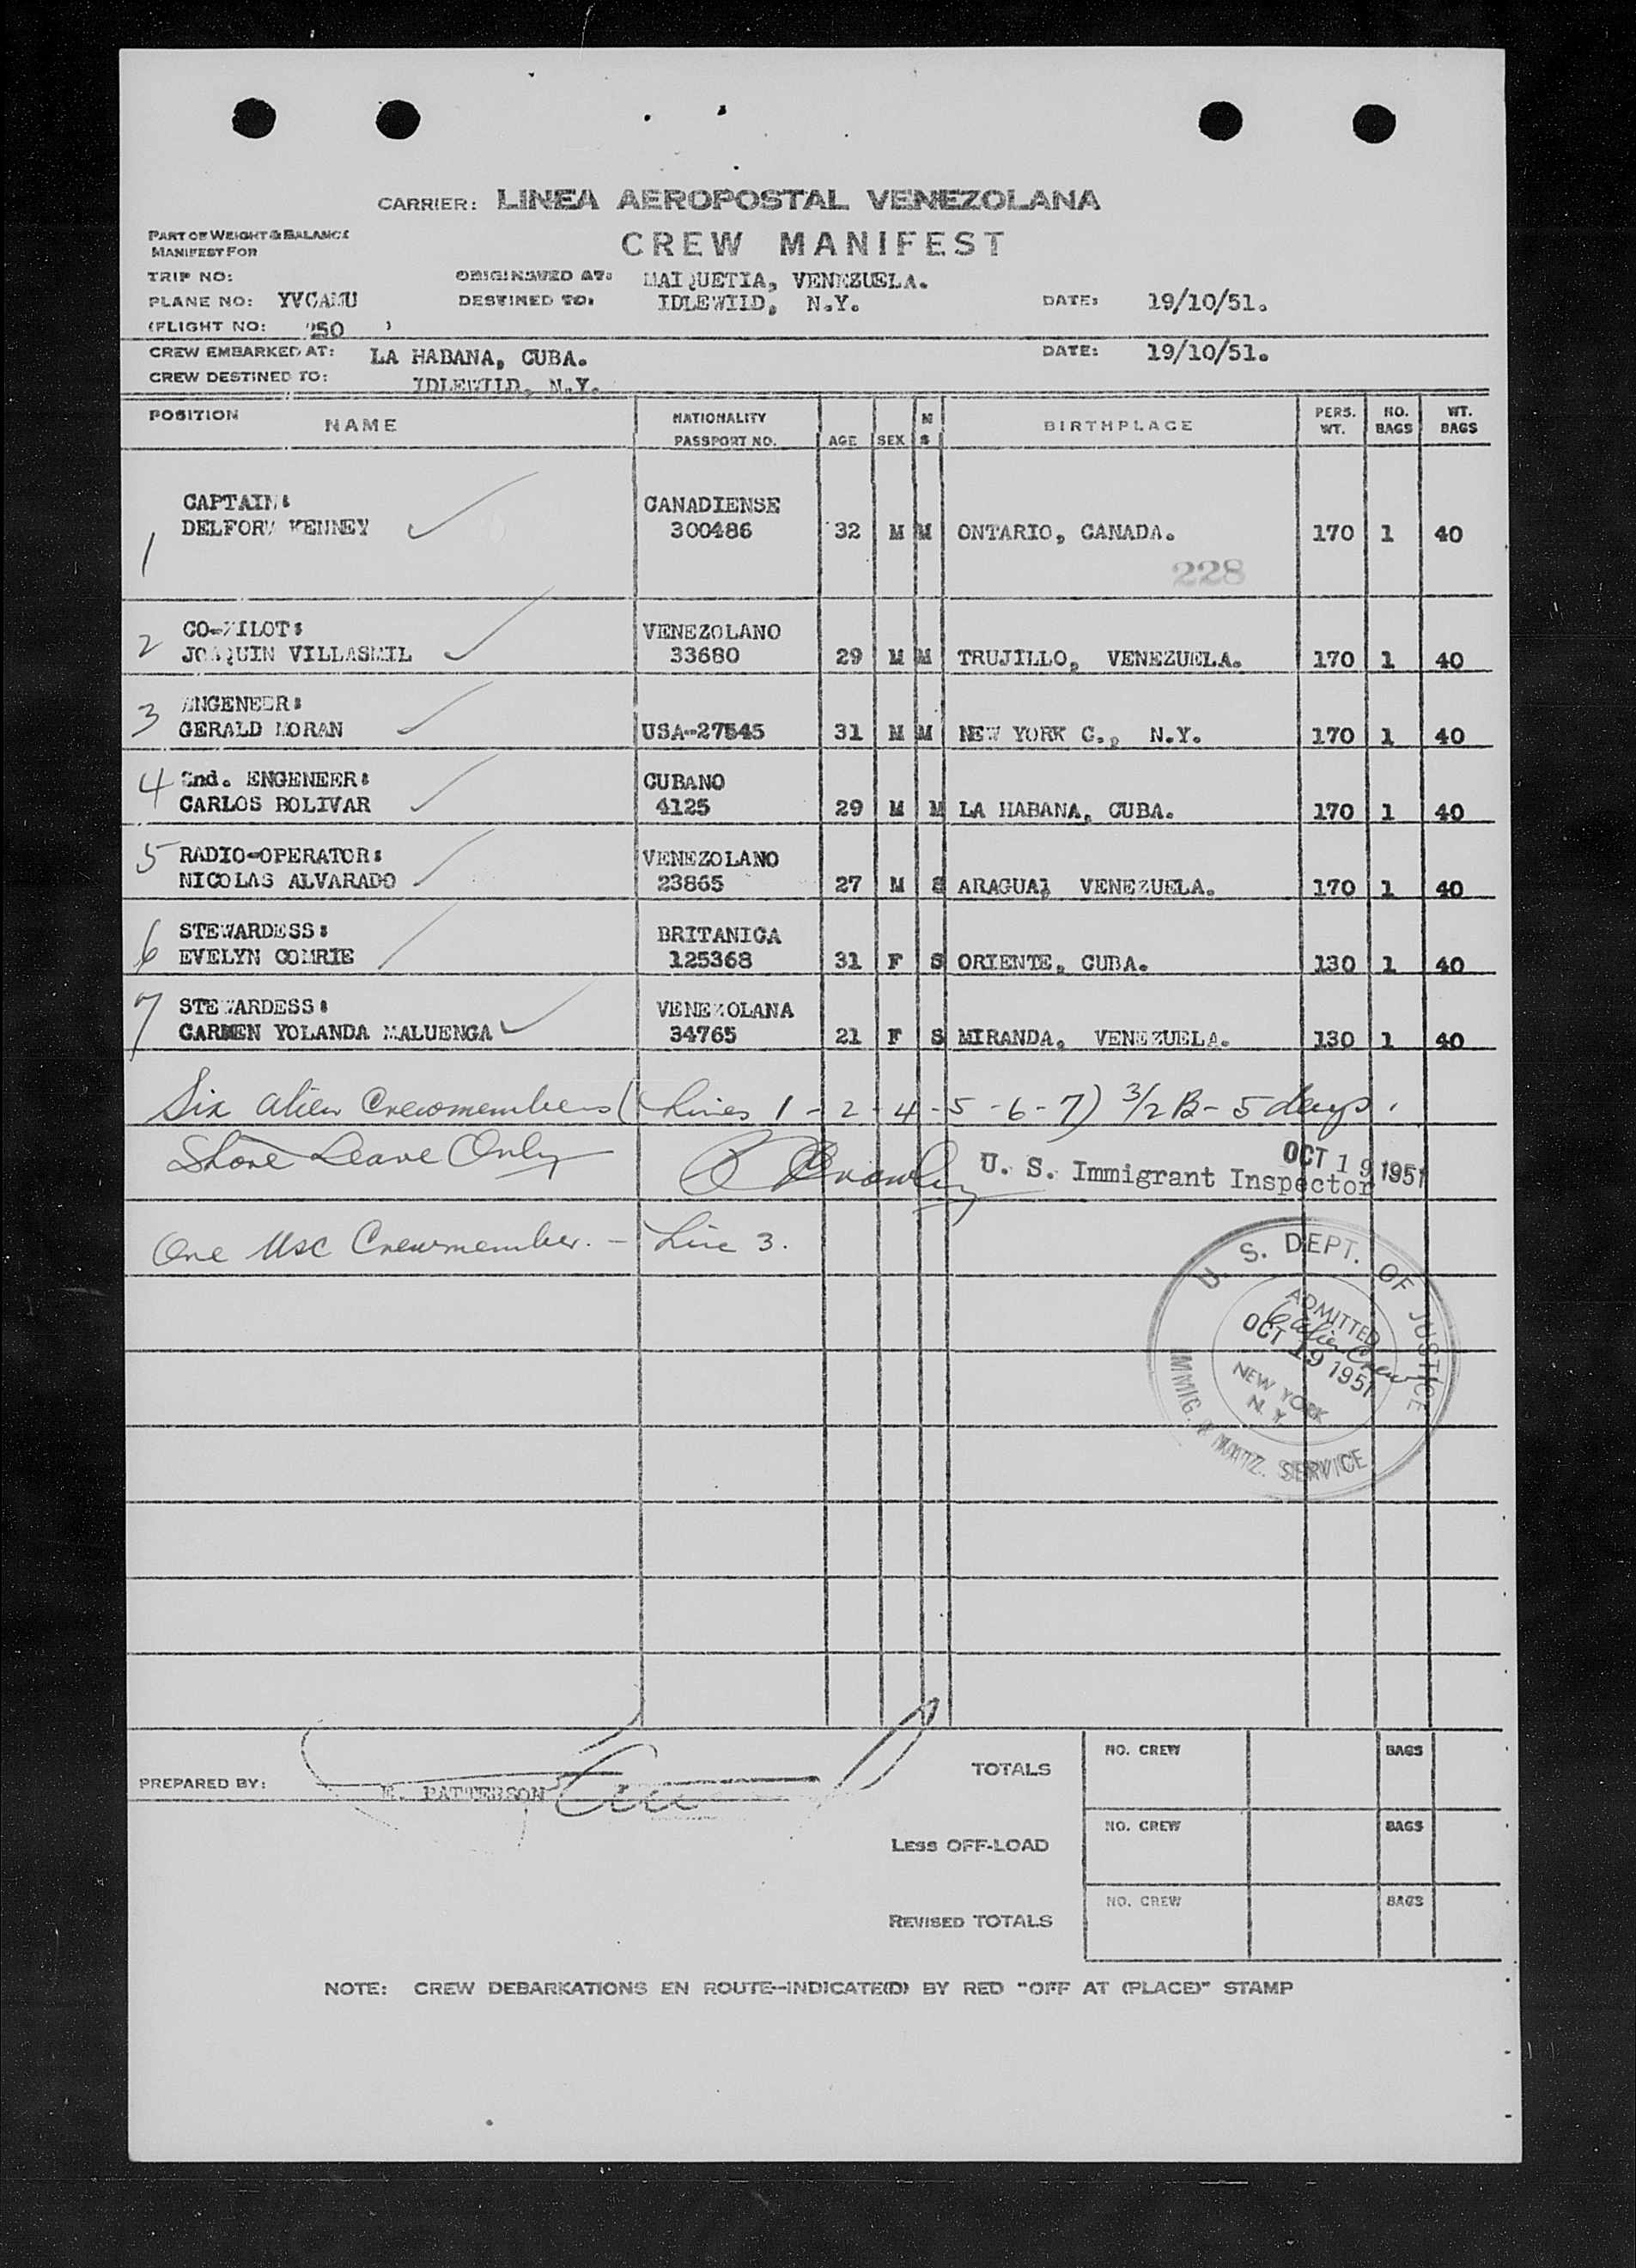 CARRIER: LINEA AEROPOSTAL VENEZOLANA
PART OF WEIGHT & BALANCE
MANIFEST FOR
CREW MANIFEST
TRIP NO:
ORIGINATED AT: MAIQUETIA, VENEZUELA.
PLANE NO: YVCAMU DESTINED TO: IDLEWILD, N.Y. DATE: 19/10/51.
(FLIGHT NO: 250 )
CREW EMBARKED AT: LA HABANA, CUBA. DATE: 19/10/51.
CREW DESTINED TO: IDLEWILD, N.Y.
POSITION NAME NATIONALITY PASSPORT NO. AGE SEX M S BIRTHPLACE PERS. WT. NO. BAGS WT. BAGS
CAPTAIN: CANADIENSE
1 KENNEY 300486 32 M M ONTARIO, CANADA. 170 1 40
228
CO-PILOT: VENEZOLANO
2 JOAQUIN VILLASMIL 33680 29 M M TRUJILLO, VENEZUELA. 170 1 40
ENGENEER:
3 GERALD MORAN USA-27545 31 M M NEW YORK C., N.Y. 170 1 40
4 2nd. ENGENEER: CUBANO
CARLOS BOLIVAR 4125 29 M M LA HABANA, CUBA. 170 1 40
5 RADIO-OPERATOR: VENEZOLANO
NICOLAS ALVARADO 23865 27 M S ARAGUA, VENEZUELA. 170 1 40
STEWARDESS: BRITANICA
6 EVELYN COMRIE 125368 31 F S ORIENTE, CUBA. 130 1 40
7 STEWARDESS: VENEZOLANA
CARMEN YOLANDA MALUENGA 34765 21 F S MIRANDA, VENEZUELA. 130 1 40
Six alien Crewmembers (Lines 1-2-4-5-6-7) 3/2 B - 5 days.
Shore Leave Only U. S. Immigrant Inspector OCT 19 1951
One USC Crewmember. - Line 3.
U. S. DEPT. OF JUSTICE
IMMIG. & NATZ. SERVICE
ADMITTED
OCT 19 1951
NEW YORK
N. Y.
PREPARED BY: E. PATTERSON
TOTALS NO. CREW BAGS
LESS OFF-LOAD NO. CREW BAGS
REVISED TOTALS NO. CREW BAGS
NOTE: CREW DEBARKATIONS EN ROUTE--INDICATE(D) BY RED "OFF AT (PLACE)" STAMP